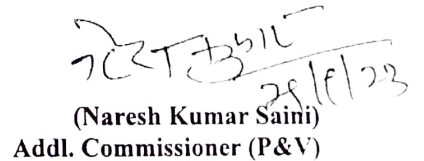 नरेश कुमार
(Naresh Kumar Saini)
Addl. Commissioner (P&V)